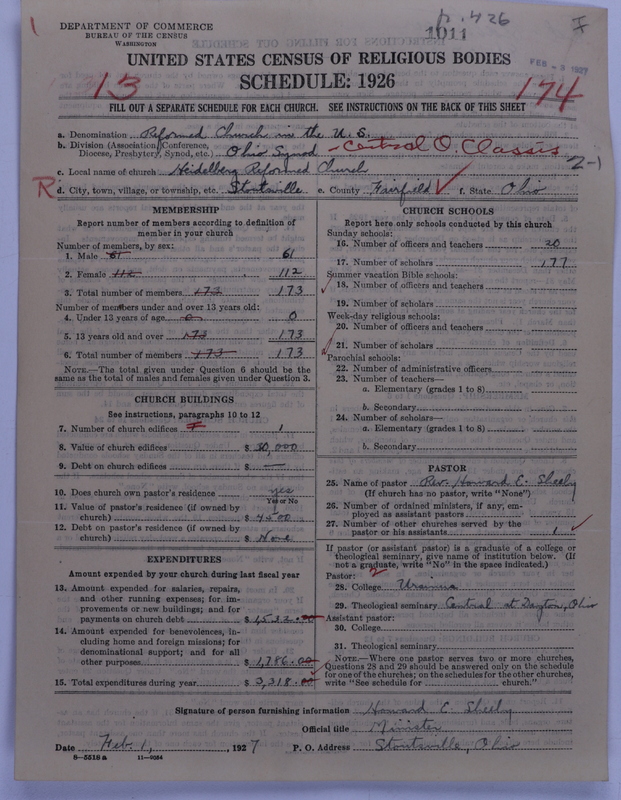 p. 426
1011
I
DEPARTMENT OF COMMERCE
BUREAU OF THE CENSUS
WASHINGTON
UNITED STATES CENSUS OF RELIGIOUS BODIES
FEB -3 1927
SCHEDULE: 1926
13
174
FILL OUT A SEPARATE SCHEDULE FOR EACH CHURCH. SEE INSTRUCTIONS ON THE BACK OF THIS SHEET
a. Denomination Reformed Church in the U.S.
b. Division (Association, Conference, Diocese, Presbytery, Synod, etc.) Ohio Synod - Central O. Classis
2-1
c. Local name of church Heidelberg Reformed Church
R d. City, town, village, or township, etc. Stoutsville e. County Fairfield f. State Ohio
MEMBERSHIP
Report number of members according to definition of
member in your church
Number of members, by sex:
1. Male 61 61
2. Female 112 112
3. Total number of members 173 173
Number of members under and over 13 years old:
4. Under 13 years of age 0 0
5. 13 years old and over 173 173
6. Total number of members 173 173
NOTE.—The total given under Question 6 should be the
same as the total of males and females given under Question 3.
CHURCH BUILDINGS
See instructions, paragraphs 10 to 12
7. Number of church edifices 1
8. Value of church edifices $ 30,000
9. Debt on church edifices $ —
10. Does church own pastor's residence yes
Yes or No
11. Value of pastor's residence (if owned by
church) $ 4500
12. Debt on pastor's residence (if owned by
church) $ None
EXPENDITURES
Amount expended by your church during last fiscal year
13. Amount expended for salaries, repairs,
and other running expenses; for im-
provements or new buildings; and for
payments on church debt $ 1,532.00
14. Amount expended for benevolences, in-
cluding home and foreign missions; for
denominational support; and for all
other purposes $ 1,786.00
15. Total expenditures during year $ 3,318.00
CHURCH SCHOOLS
Report here only schools conducted by this church
Sunday schools:
16. Number of officers and teachers 20
17. Number of scholars 177
Summer vacation Bible schools:
18. Number of officers and teachers
19. Number of scholars
Week-day religious schools:
20. Number of officers and teachers
21. Number of scholars
Parochial schools:
22. Number of administrative officers
23. Number of teachers—
a. Elementary (grades 1 to 8)
b. Secondary
24. Number of scholars—
a. Elementary (grades 1 to 8)
b. Secondary
PASTOR
25. Name of pastor Rev. Howard C. Sheely
(If church has no pastor, write "None")
26. Number of ordained ministers, if any, em-
ployed as assistant pastors
27. Number of other churches served by the
pastor or his assistants 1
If pastor (or assistant pastor) is a graduate of a college or
theological seminary, give name of institution below. (If
not a graduate, write "No" in the space indicated.)
Pastor: 2
28. College Ursinus
29. Theological seminary Central at Dayton, Ohio
Assistant pastor:
30. College
31. Theological seminary
NOTE.—Where one pastor serves two or more churches,
Questions 28 and 29 should be answered only on the schedule
for one of the churches; on the schedules for the other churches,
write "See schedule for church."
Signature of person furnishing information Howard C. Sheely
Official title Minister
Date Feb. 1, 1927 P. O. Address Stoutsville, Ohio
8—5518 a 11—9084